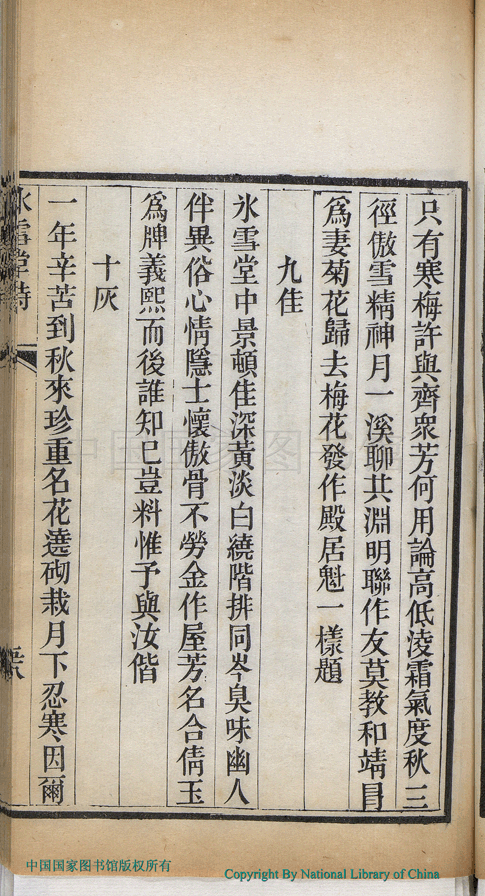 只有寒梅許與齊衆芳何用論高低淩霜氣度秋三
徑傲雪精神月一溪聊共淵明聯作友莫教和靖冒
爲妻菊花歸去梅花發作殿居魁一樣題
九佳
氷雪堂中景頓佳深黃淡白繞階排同岑臭味幽人
伴異俗心情隱士懷傲骨不勞金作屋芳名合倩玉
爲牌義熙而後誰知已豈料惟予與汝偕
十灰
一年辛苦到秋來珍重名花遶砌栽月下忍寒因爾
氷雪堂詩
中国国家图书馆
中国国家图书馆版权所有
Copyright By National Library of China